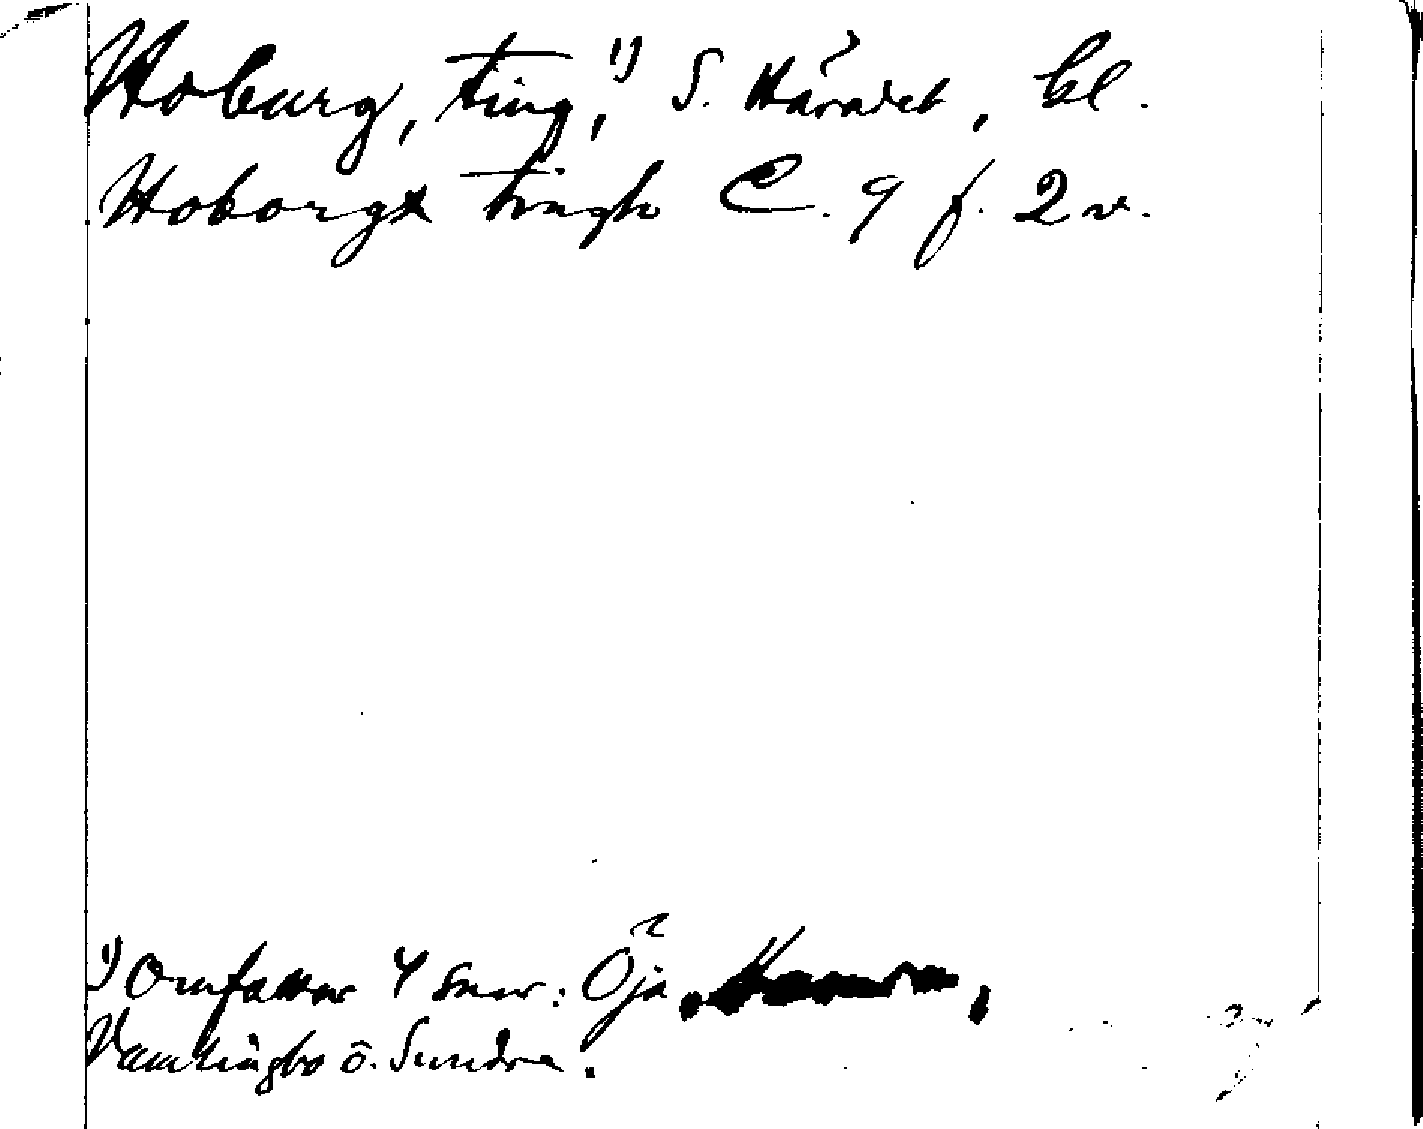 Hoburg, ting,¹⁾ S. Häradet, bl.
Hoborgx tingh C. 9 f. 2 v.
¹⁾ Omfattar 4 snr: Öja, Hamra,
Vamlingbo o. Sundre.